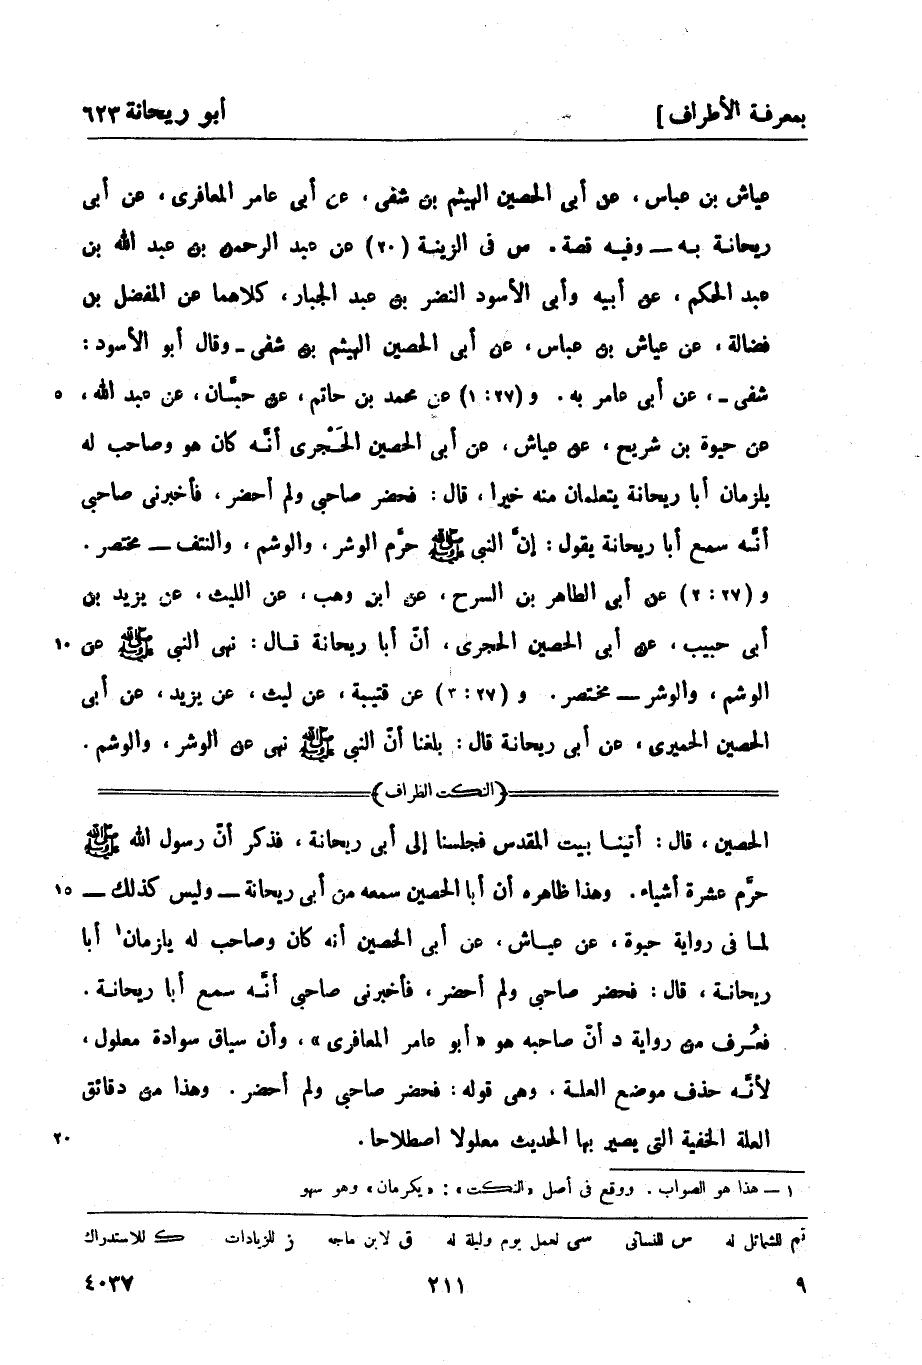 بمعرفة الأطراف ] أبو ريحانة ٦٢٣
عياش بن عباس، عن أبى الحصين الهيثم بن شفى، عن أبى عامر المعافرى، عن أبى
ريحانة به ــ وفيه قصة. س فى الزينة (٢٠) عن عبد الرحمن بن عبد الله بن
عبد الحكم، عن أبيه وأبى الأسود النضر بن عبد الجبار، كلاهما عن المفضل بن
فضالة، عن عياش بن عباس، عن أبى الحصين الهيثم بن شفى ـ وقال أبو الأسود:
شفى ـ، عن أبى عامر به. و (٢٧: ١) عن محمد بن حاتم، عن حبَّان، عن عبد الله، ٥
عن حيوة بن شريح، عن عياش، عن أبى الحصين الحَجْرى أنَّه كان هو وصاحب له
يلزمان أبا ريحانة يتعلمان منه خيرا، قال: فحضر صاحبى ولم أحضر، فأخبرنى صاحبى
أنَّه سمع أبا ريحانة يقول: إنَّ النبى ﷺ حرَّم الوشر، والوشم، والنتف ــ مختصر.
و (٢٧: ٢) عن أبى الطاهر بن السرح، عن ابن وهب، عن الليث، عن يزيد بن
أبى حبيب، عن أبى الحصين الحجرى، أنّ أبا ريحانة قال: نهى النبى ﷺ عن ١٠
الوشم، والوشر ــ مختصر. و (٢٧: ٣) عن قتيبة، عن ليث، عن يزيد، عن أبى
الحصين الحميرى، عن أبى ريحانة قال: بلغنا أنّ النبى ﷺ نهى عن الوشر، والوشم.
(النكت الظراف)
الحصين، قال: أتينا بيت المقدس فجلسنا إلى أبى ريحانة، فذكر أنّ رسول الله ﷺ
حرَّم عشرة أشياء. وهذا ظاهره أن أبا الحصين سمعه من أبى ريحانة ــ وليس كذلك ــ ١٥
لما فى رواية حيوة، عن عياش، عن أبى الحصين أنه كان وصاحب له يلزمان١ أبا
ريحانة، قال: فحضر صاحبى ولم أحضر، فأخبرنى صاحبى أنَّه سمع أبا ريحانة.
فعُرف من رواية د أنّ صاحبه هو «أبو عامر المعافرى»، وأن سياق سوادة معلول،
لأنَّه حذف موضع العلة، وهى قوله: فحضر صاحبى ولم أحضر. وهذا من دقائق
العلة الخفية التى يصير بها الحديث معلولا اصطلاحا. ٢٠
١ ــ هذا هو الصواب. ووقع فى أصل «النكت»: «يكرمان» وهو سهو
تم للشمائل له س للنسائى سى لعمل يوم وليلة له ق لابن ماجه ز للزيادات ك للاستدراك
٩ ٢١١ ٤٠٣٧